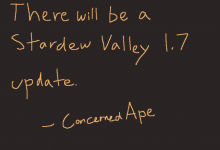 There will be a
Stardew Valley 1.7
update.
- ConcernedApe